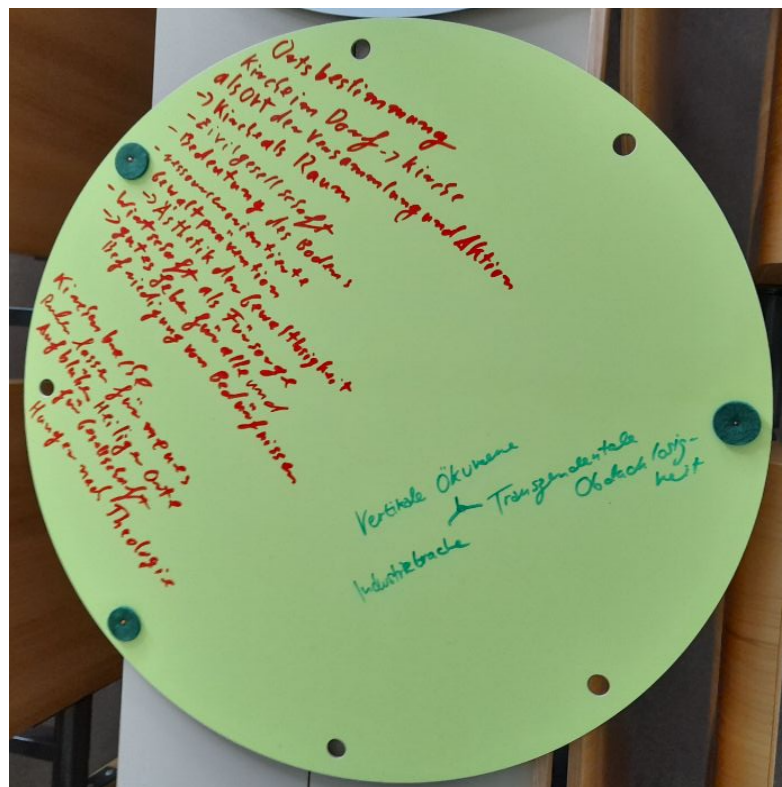 Ortsbestimmung
Kirche im Dorf → Kirche
als Ort der Versammlung und Aktion
→ Kirche als Raum
- Zivilgesellschaft
- Bedeutung des Bodens
- ressourcenorientierte
Gewaltprävention
→ Ästhetik der Gewaltlosigkeit
- Wirtschaft als Fürsorge
→ gutes Leben für alle und
Befriedigung von Bedürfnissen
Kirchenbrache
Ruhen lassen für neues
Aufblühen Heiliger Orte
für Gesellschaft
Hunger nach Theologie
Vertikale Ökumene
Transzendentale
Obdachlosig-
keit
Industriebrache